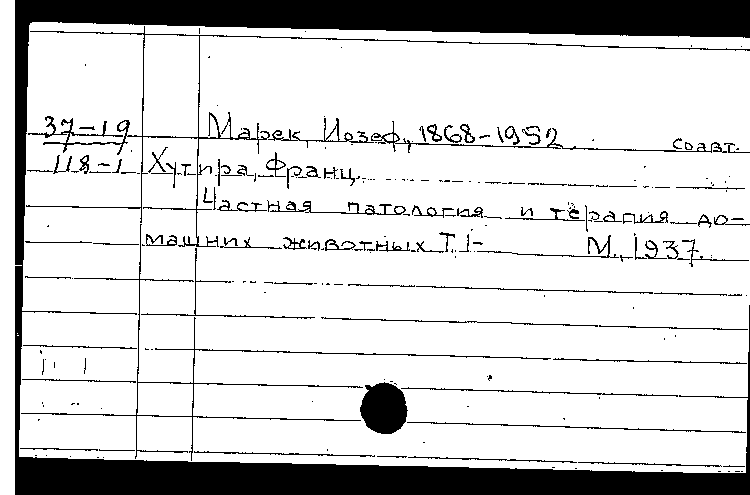 37-19 Марек, Иозеф, 1868-1952 соавт.
118-1 Хутира, Франц.
Частная патология и терапия до-
машних животных Т. I- М., 1937.